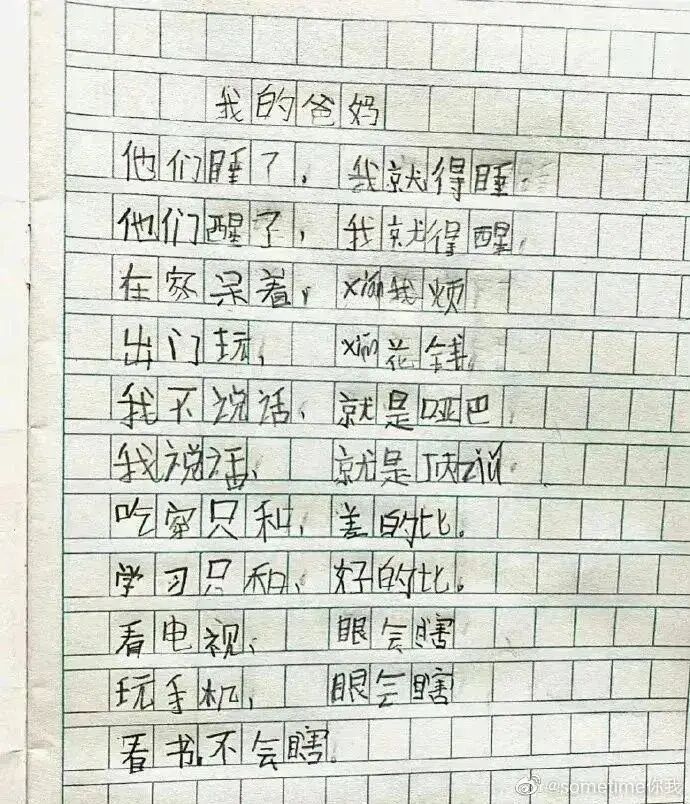 我的爸妈
他们睡了，我就得睡
他们醒了，我就得醒，
在家呆着，xián我烦
出门玩，xián花钱，
我不说话，就是哑巴，
我说话，就是顶zuǐ
吃穿只和，差的比。
学习只和，好的比。
看电视，眼会瞎
玩手机，眼会瞎
看书不会瞎。
@sometime你我